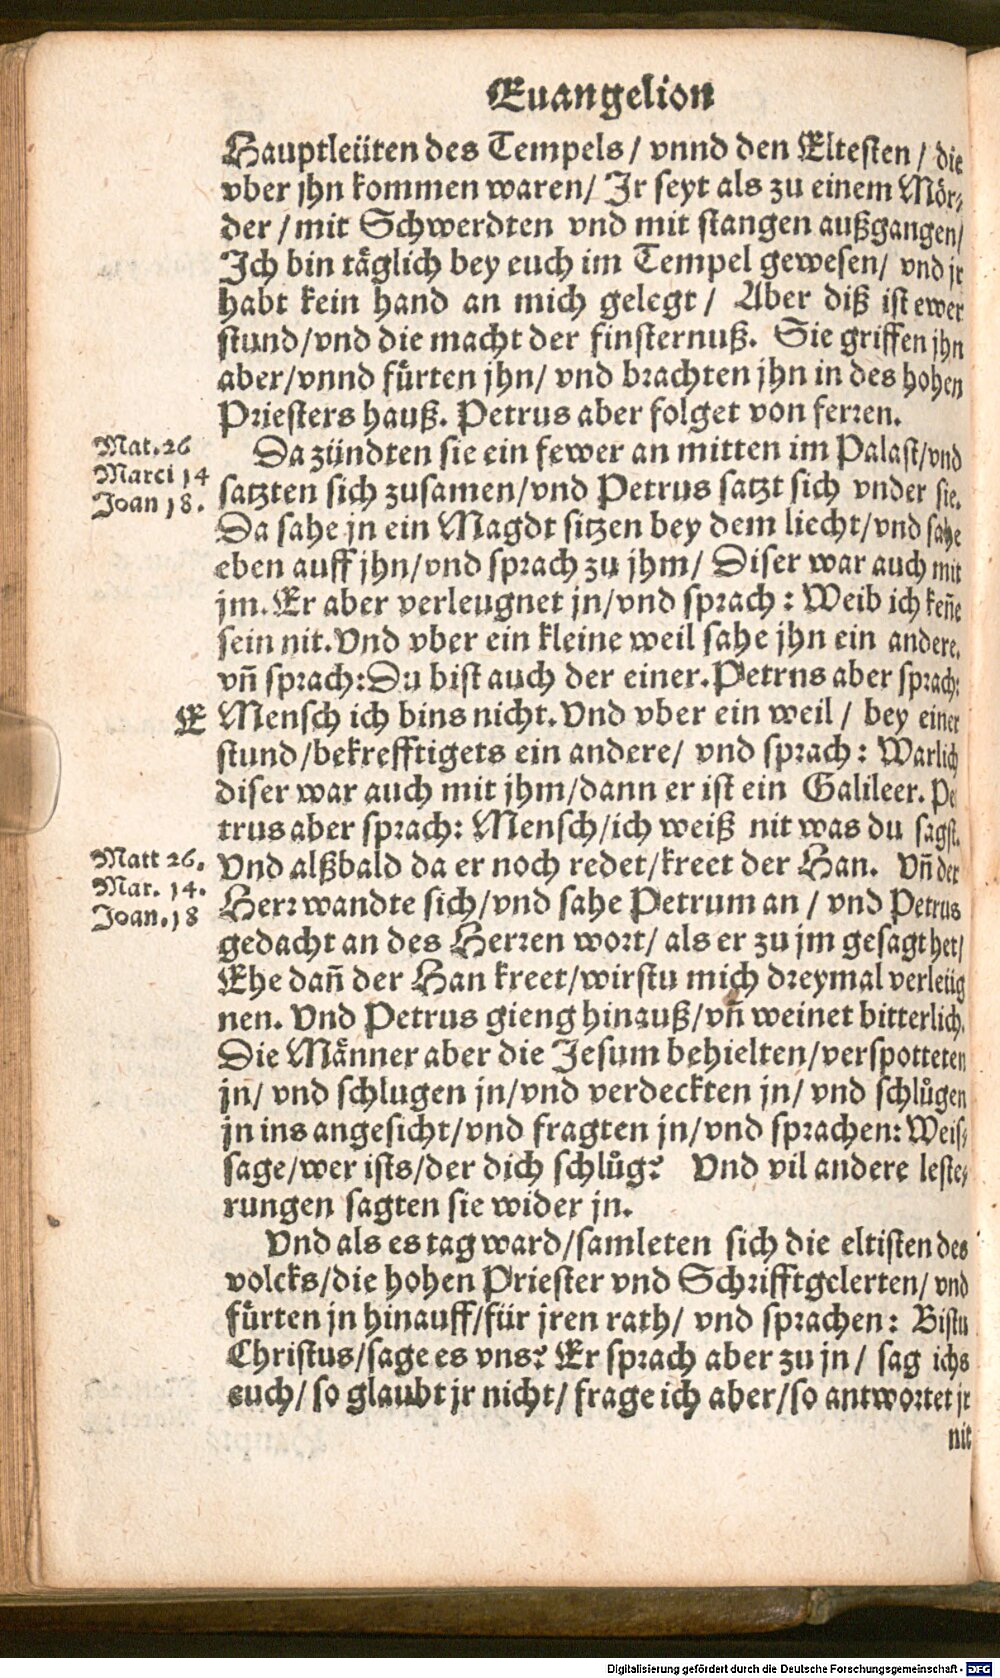 Euangelion
Hauptleüten des Tempels / vnnd den Eltesten / die
vber jhn kommen waren / Jr seyt als zu einem Mör⸗
der / mit Schwerdten vnd mit stangen außgangen /
Jch bin täglich bey euch im Tempel gewesen / vnd jr
habt kein hand an mich gelegt / Aber diß ist ewer
stund / vnd die macht der finsternuß. Sie griffen jhn
aber / vnnd fürten jhn / vnd brachten jhn in des hohen
Priesters hauß. Petrus aber folget von ferren.
Mat. 26
Marci 14
Joan 18.
Da zündten sie ein fewer an mitten im Palast / vnd
satzten sich zusamen / vnd Petrus satzt sich vnder sie.
Da sahe jn ein Magdt sitzen bey dem liecht / vnd sahe
eben auff jhn / vnd sprach zu jhm / Diser war auch mit
jm. Er aber verleugnet jn / vnd sprach : Weib ich keñe
sein nit. Vnd vber ein kleine weil sahe jhn ein andere.
vñ sprach: Du bist auch der einer. Petrns aber sprach:
E
Mensch ich bins nicht. Vnd vber ein weil / bey einer
stund / bekrefftigets ein andere / vnd sprach : Warlich
diser war auch mit jhm / dann er ist ein Galileer. Pe
trus aber sprach: Mensch / ich weiß nit was du sagst.
Matt 26.
Mar. 14.
Joan. 18
Vnd alßbald da er noch redet / kreet der Han. Vñ der
Herr wandte sich / vnd sahe Petrum an / vnd Petrus
gedacht an des Herren wort / als er zu jm gesagt het /
Ehe dañ der Han kreet / wirstu mich dreymal verleüg
nen. Vnd Petrus gieng hinauß / vñ weinet bitterlich.
Die Männer aber die Jesum behielten / verspotteten
jn / vnd schlugen jn / vnd verdeckten jn / vnd schlůgen
jn ins angesicht / vnd fragten jn / vnd sprachen: Weis⸗
sage / wer ists / der dich schlůg? Vnd vil andere leste⸗
rungen sagten sie wider jn.
Vnd als es tag ward / samleten sich die eltisten des
volcks / die hohen Priester vnd Schrifftgelerten / vnd
fürten jn hinauff / für jren rath / vnd sprachen : Bistu
Christus / sage es vns? Er sprach aber zu jn / sag ichs
euch / so glaubt jr nicht / frage ich aber / so antwortet jr
nit
Digitalisierung gefördert durch die Deutsche Forschungsgemeinschaft - DFG